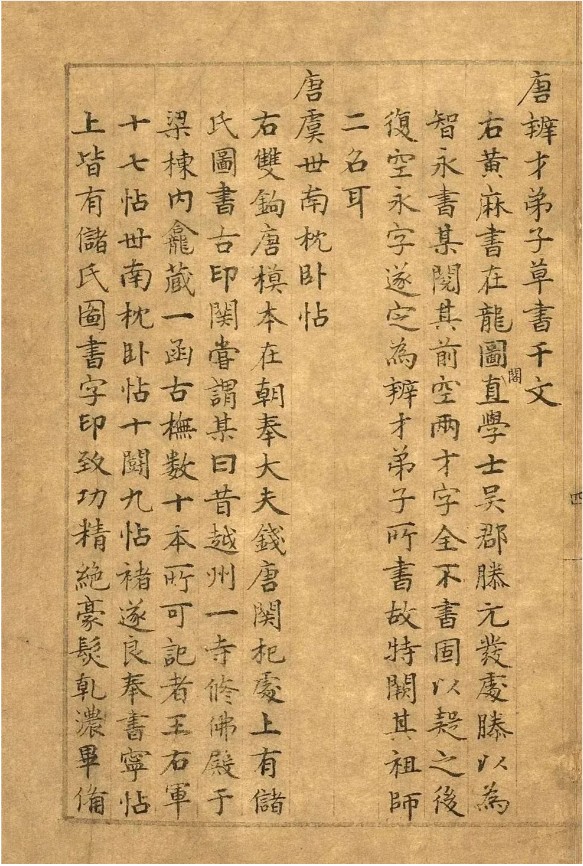 唐辨才弟子草書千文
右黃麻書在龍圖閣直學士吴郡滕元發處滕以為
智永書某閱其前空兩才字全不書固以疑之後
復空永字遂定為辨才弟子所書故特闕其祖師
二名耳
唐虞世南枕卧帖
右雙鉤唐模本在朝奉大夫錢唐関杞處上有儲
氏圖書古印関嘗謂某曰昔越州一寺修佛殿于
梁棟内龕藏一函古橅數十本所可記者王右軍
十七帖世南枕卧帖十闘九帖褚遂良奉書寧帖
上皆有儲氏圖書字印致功精絶豪髮乾濃畢備